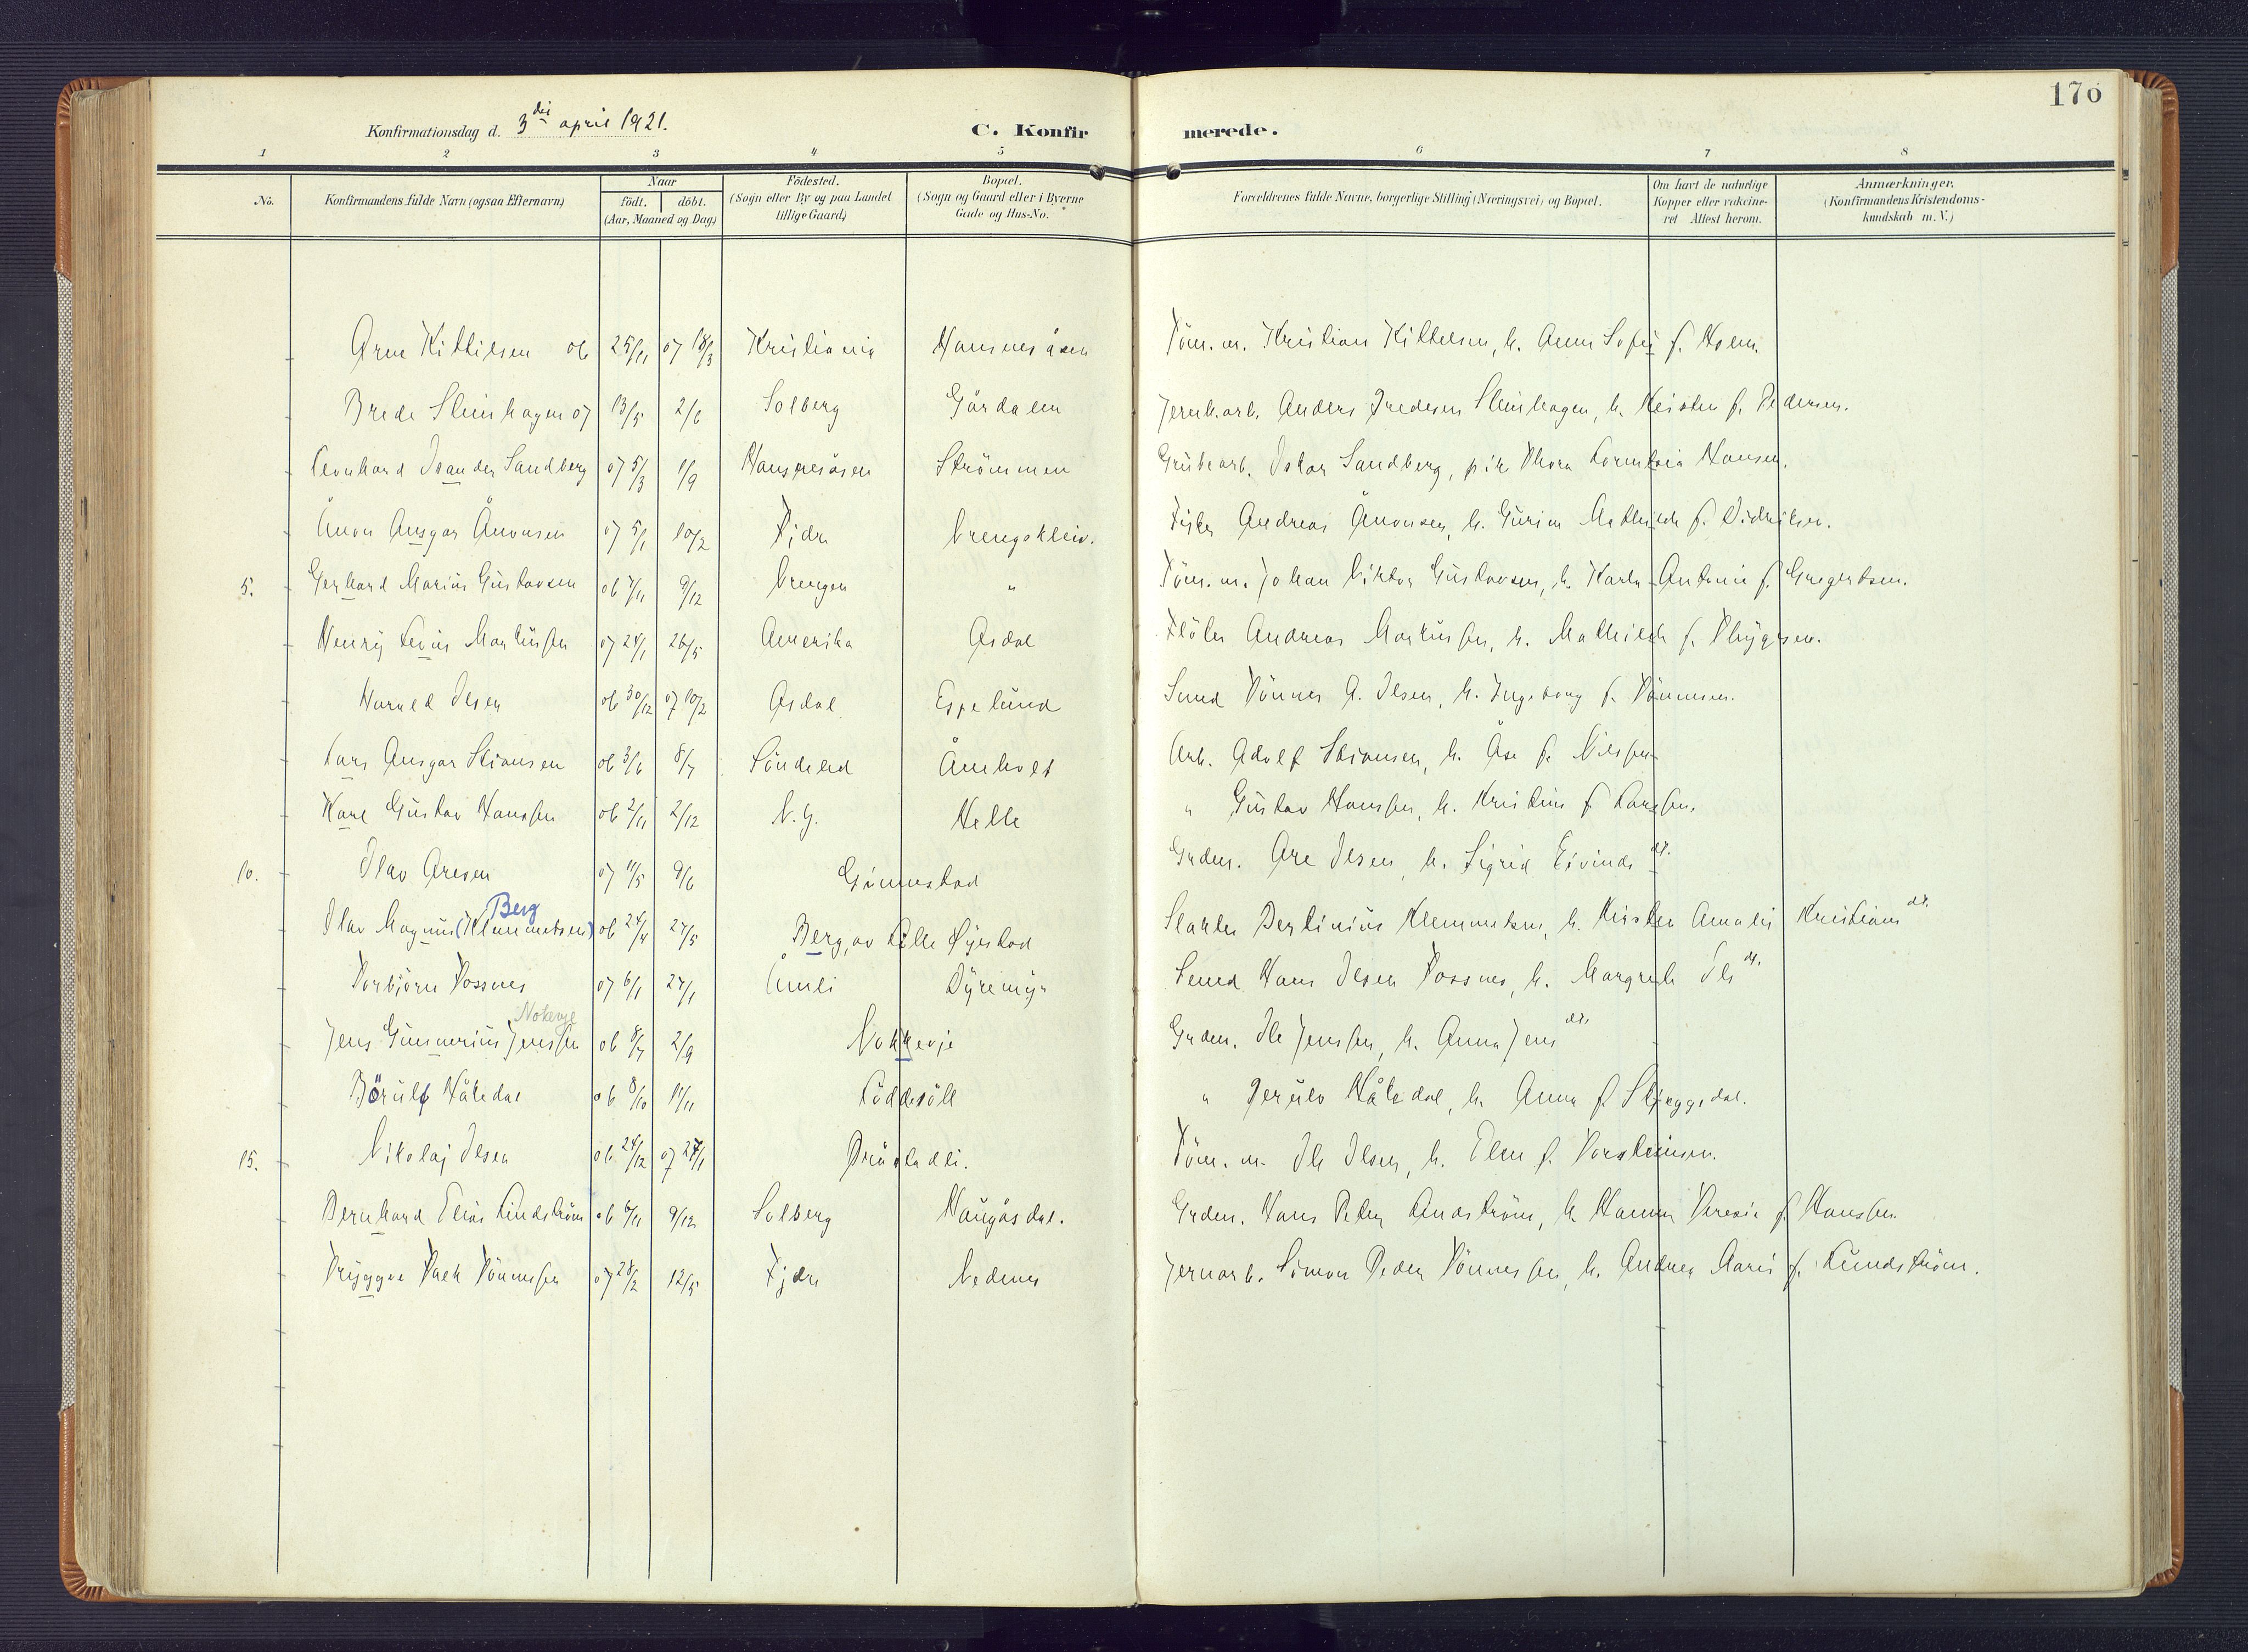 176
Konfirmationsdag d. 3die april 1921.
C. Konfirmerede.
1 2 3 4 5 6 7 8
No. Konfirmandens fulde Navn (ogsaa Efternavn) Naar födt. döbt. (Aar, Maaned og Dag) Födested. (Sogn eller By og paa Landet tillige Gaard) Bopæl. (Sogn og Gaard eller i Byerne Gade og Hus-No.) Forældrenes fulde Navne, borgerlige Stilling (Næringsvei) og Bopæl. Om havt de naturlige Kopper eller vakcineret Attest herom. Anmærkninger. (Konfirmandens Kristendomskundskab m. V.)
Arne Kittilsen 06 25/11 07 18/3 Kristiania Hansnesåsen Töm. m. Kristian Kittelsen, h. Anna Sofie f. Holm.
Brede Steinhagen 07 13/5 2/6 Solberg Gårdalen Jernb.arb. Anders Bredesen Steinhagen, h. Kristen f. Pedersen.
Leonhard Isander Sandberg 07 5/3 1/9 Hansnesåsen Strömmen Grubearb. Oskar Sandberg, pike Thora Hansen.
Ånon Ansgar Ånonsen 07 5/1 10/2 Fjære Vrengekleiv. Andreas Ånonsen, h. Gurine Mathilde f. Didriksen.
5. Gerhard Marius Gustavsen 06 7/11 9/12 Vrengen " Töm. m. Johan Viktor Gustavsen, h. Karla Antonie f. Gregertsen.
Henry Levin Martinsen 07 24/1 26/5 Amerika Asdal Flöter Andreas Martinsen, h. Mathilde f. Thygesen.
Harald Olsen 06 30/12 07 10/2 Asdal Espelund Smed Tönnes A. Olsen, h. Ingeborg f. Tönnesen.
Lars Ansgar Stiansen 06 3/6 8/7 Söndeled Åmholt Arb. Adolf Stiansen, h. Åse f. Nilsen
Karl Gustav Hanssen 06 2/11 2/12 N.G. Helle " Gustav Hanssen, h. Kristine f. Larssen.
10. Olav Aresen 07 11/5 9/6 Gunnestad Grdm. Are Olsen, h. Sigrid Eivindsdt.
Olav Magnus (Klemmetsen) Berg 06 24/4 27/5 Berg, av Lille Öyestad Slakter Bertinius Klemmetsen, h. Kirsten Amalie Kristiansdt.
Torbjörn Vossnes 07 6/1 27/1 Åmli Dyremyr Smed Hans Olsen Vossnes, h. Margrethe Olsdt.
Jens Gunnerius Jenssen Nokevje 06 8/7 2/9 Nokkevje Grdm. Ole Jenssen, h. Anna Jensdt.
Börulf Håtedal 06 8/10 11/11 Löddesöl " Berulv Håtedal, h. Anna f. Skjeggedal.
15. Nikolaj Olsen 06 24/12 07 27/1 Töm. m. Ole Olsen, h. Elen f. Torsteinsen.
Bernhard Elias Lindström 06 6/11 9/12 Solberg Haugåsdal. Grdm. Hans Peter Lindström, h. Hanna Teresie f. Hanssen.
Tryggve Falk Tönnessen 07 28/2 12/5 Fjære Nedenes Jernarb. Simon Peder Tönnessen, h. Andrea Marie f. Lundström.